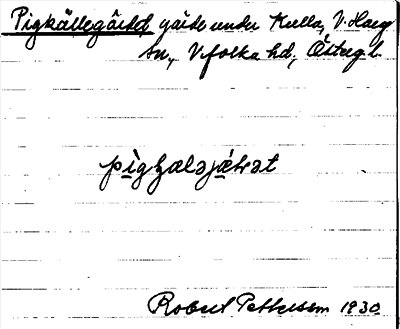 Pigkällegärdet gärde under Kulla, V. Harg
sn, Vifolka hd, Östergl.
Robert Pettersson 1930